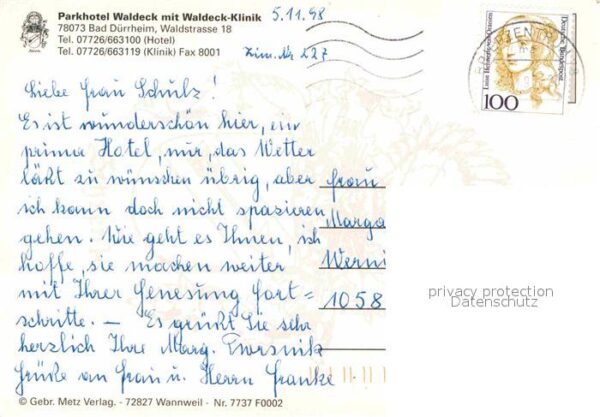 Parkhotel Waldeck mit Waldeck-Klinik
78073 Bad Dürrheim, Waldstrasse 18
Tel. 07726/663100 (Hotel)
Tel. 07726/663119 (Klinik) Fax 8001
5.11.98
Zim. Nr 227
Deutsche Bundespost
100
Liebe Frau Schulz!
Es ist wunderschön hier, ein
prima Hotel, nur, das Wetter
läßt zu wünschen übrig, aber
ich kann doch nicht spazieren
gehen. Wie geht es Ihnen, ich
hoffe, sie machen weiter
mit Ihrer Genesung Fort=
schritte. — Es grüßt Sie sehr
herzlich Ihre Marg.
Grüße an Frau u. Herrn Franke
Frau
Marga
Werni
1058
privacy protection
Datenschutz
© Gebr. Metz Verlag. - 72827 Wannweil - Nr. 7737 F0002